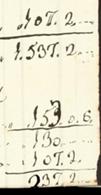 107.2
1.537.2
153.0.6.
130
107.2
237.2